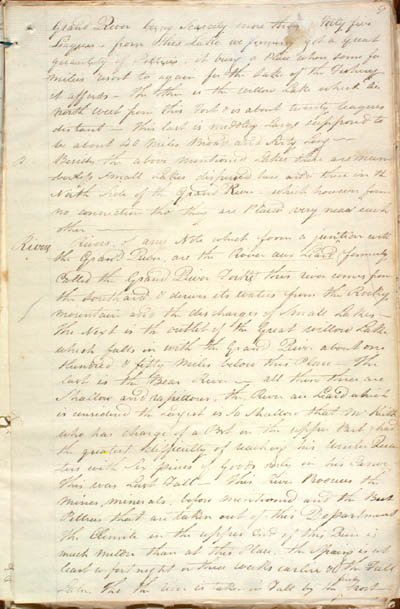 9
Grand River being scarcely more than forty five
Leagues - from this Lake we formerly got a great
quantity of Pelteries. it being a Place where some fa
milies resort to again for the sake of the Fishery
it affords - the other is the Willow Lake which lies
north west from this Fort & is about twenty leagues
distant - this last is middling large supposed to
be about 40 miles Broad and Sixty Long -
Besides the above mentioned Lakes there are num
berless small Lakes dispersed here and there in the
North Side of the Grand River - which however form
no connection tho' they are Placed very near each
other -
Rivers
Rivers, of any Note which form a junction with
the Grand River, are the River aux Liard formerly
called the Grand River Forks this river comes from
the Southward & derives its waters from the Rocky
mountain and the discharges of Small Lakes -
the Next is the outlet of the Great Willow Lake
which falls in with the Grand River about one
hundred & fifty miles below this Place - The
last is the Bear River - all these three are
Shallow and rapettous. the River au Liard which
is considered the largest is so Shallow that Mr Keith
who has charge of a Post in the upper Part had
the greatest difficulty of reaching his Winter Quar
ters with Six pieces of Goods only in his Canoe
This was Last Fall - This River Produces the
Mines, minerals, before mentioned and the Best
Peltries that are taken out of this Department
the Climate in the upper End of this River is
much milder than at this Place. the Spring is at
least a fortnight or three weeks earlier & the Fall
later. the River is taken in Fall by the Frost